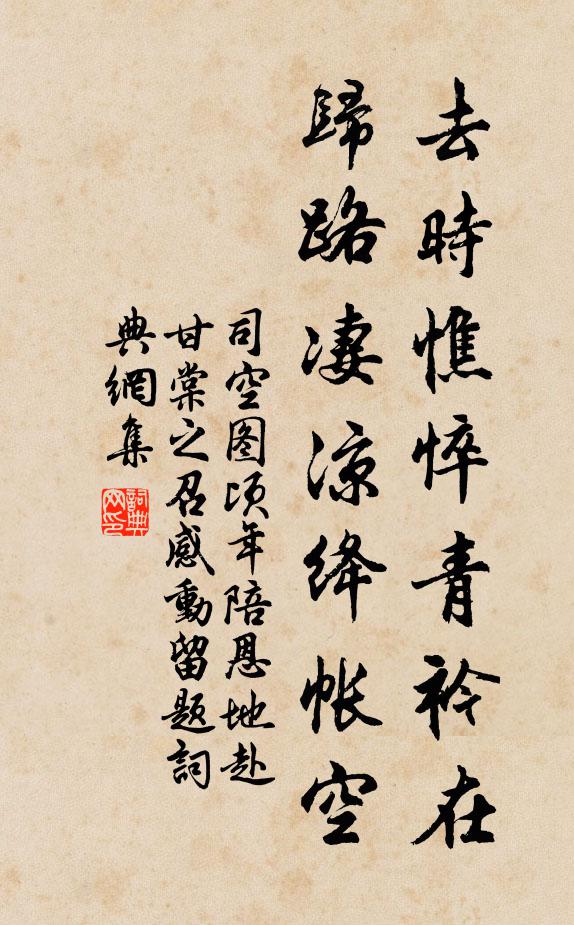 去時憔悴青衿在
歸路淒涼絳帳空
司空图頃年陪恩地赴
甘棠之召感動留題詞
典網集
詞典网印